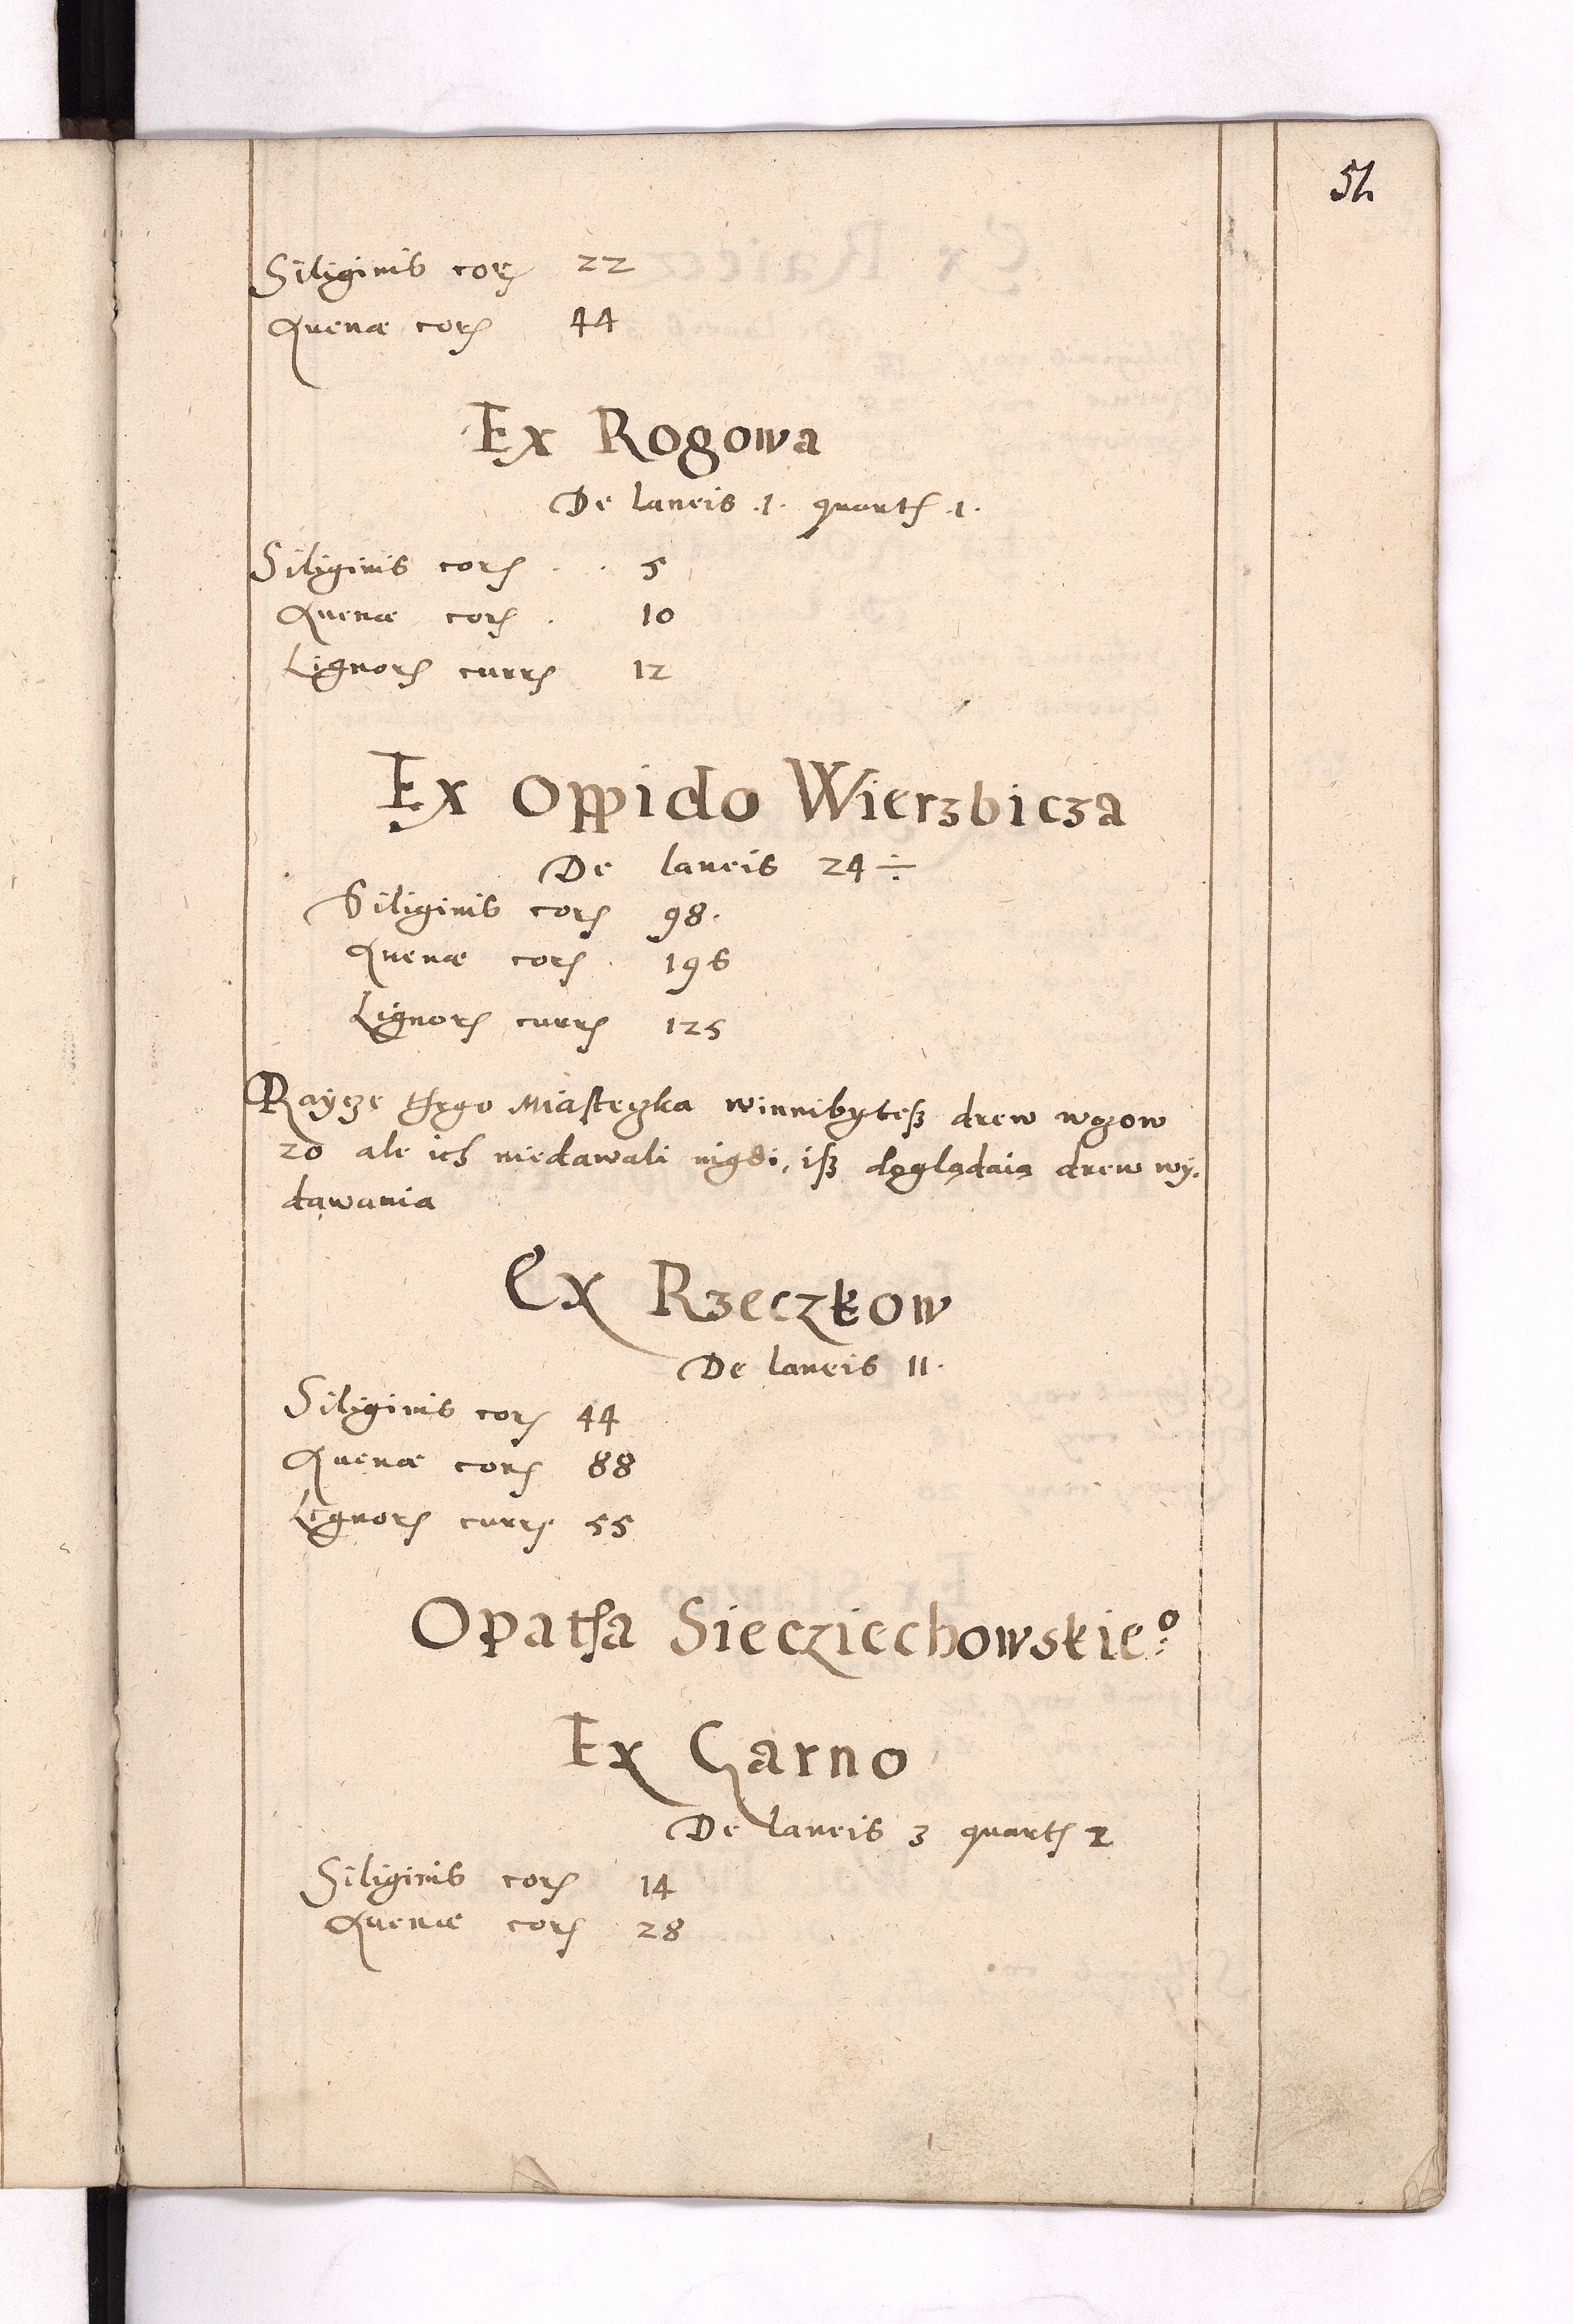 52
Siliginis corꝫ 22
Auenæ corꝫ 44
Ex Rogowa
De laneis .1. quartꝫ .1.
Siliginis corꝫ . . 5
Auenæ corꝫ . 10
Lignorꝫ currꝫ 12
Ex Oppido Wierzbicza
De laneis 24 ÷
Siliginis corꝫ 98.
Auenæ corꝫ . 196
Lignorꝫ currꝫ 125
Raycze thego Miasteczka winnibytesz drew wozow
20 ale ich niedawali nigdi, isz doglądaią drew wy-
dawania
Ex Rzeczkow
De laneis 11.
Siliginis corꝫ 44
Auenæ corꝫ 88
Lignorꝫ currꝫ 55
Opatha Siecziechowskieº
Ex Garno
De laneis 3 quartꝫ 2
Siliginis corꝫ 14
Auenæ corꝫ 28